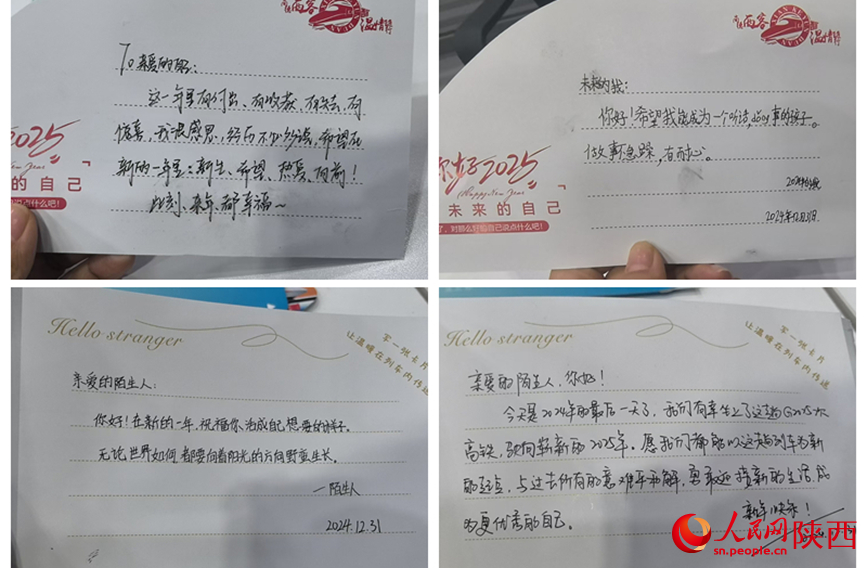 西客
温情
To 亲爱的
这一年里有付出、有收获、有失去、有
惊喜，我很感恩，经历不少
希望在
新的一年里：新生、希望、热爱、向前！
此刻、来年、都幸福~
2025
New Year
的自己
说点什么吧!
西客
温情
未来的我：
你好！希望我能成为一个听话，的孩子。
做事急躁，有耐心。
2024
2024年12月31日
你好2025
Happy New Year
未来的自己
，对那么好的自己说点什么吧!
Hello stranger
写一张卡片
让温暖在列车内传递
亲爱的陌生人：
你好！在新的一年，祝福你活成自己想要的样子。
无论世界如何，都要向着阳光的方向野蛮生长。
一陌生人
2024.12.31
Hello stranger
写一张卡片
让温暖在列车内传递
亲爱的陌生人，你好！
今天是2024年的最后一天了，我们有幸坐上了这趟G2025次
高铁，驶向崭新的2025年。愿我们都能以这趟列车为新
的起点，与过去所有的意难平和解，勇敢迎接新的生活，成
为更优秀的自己。
新年快乐！
人民网 陕西
sn.people.cn